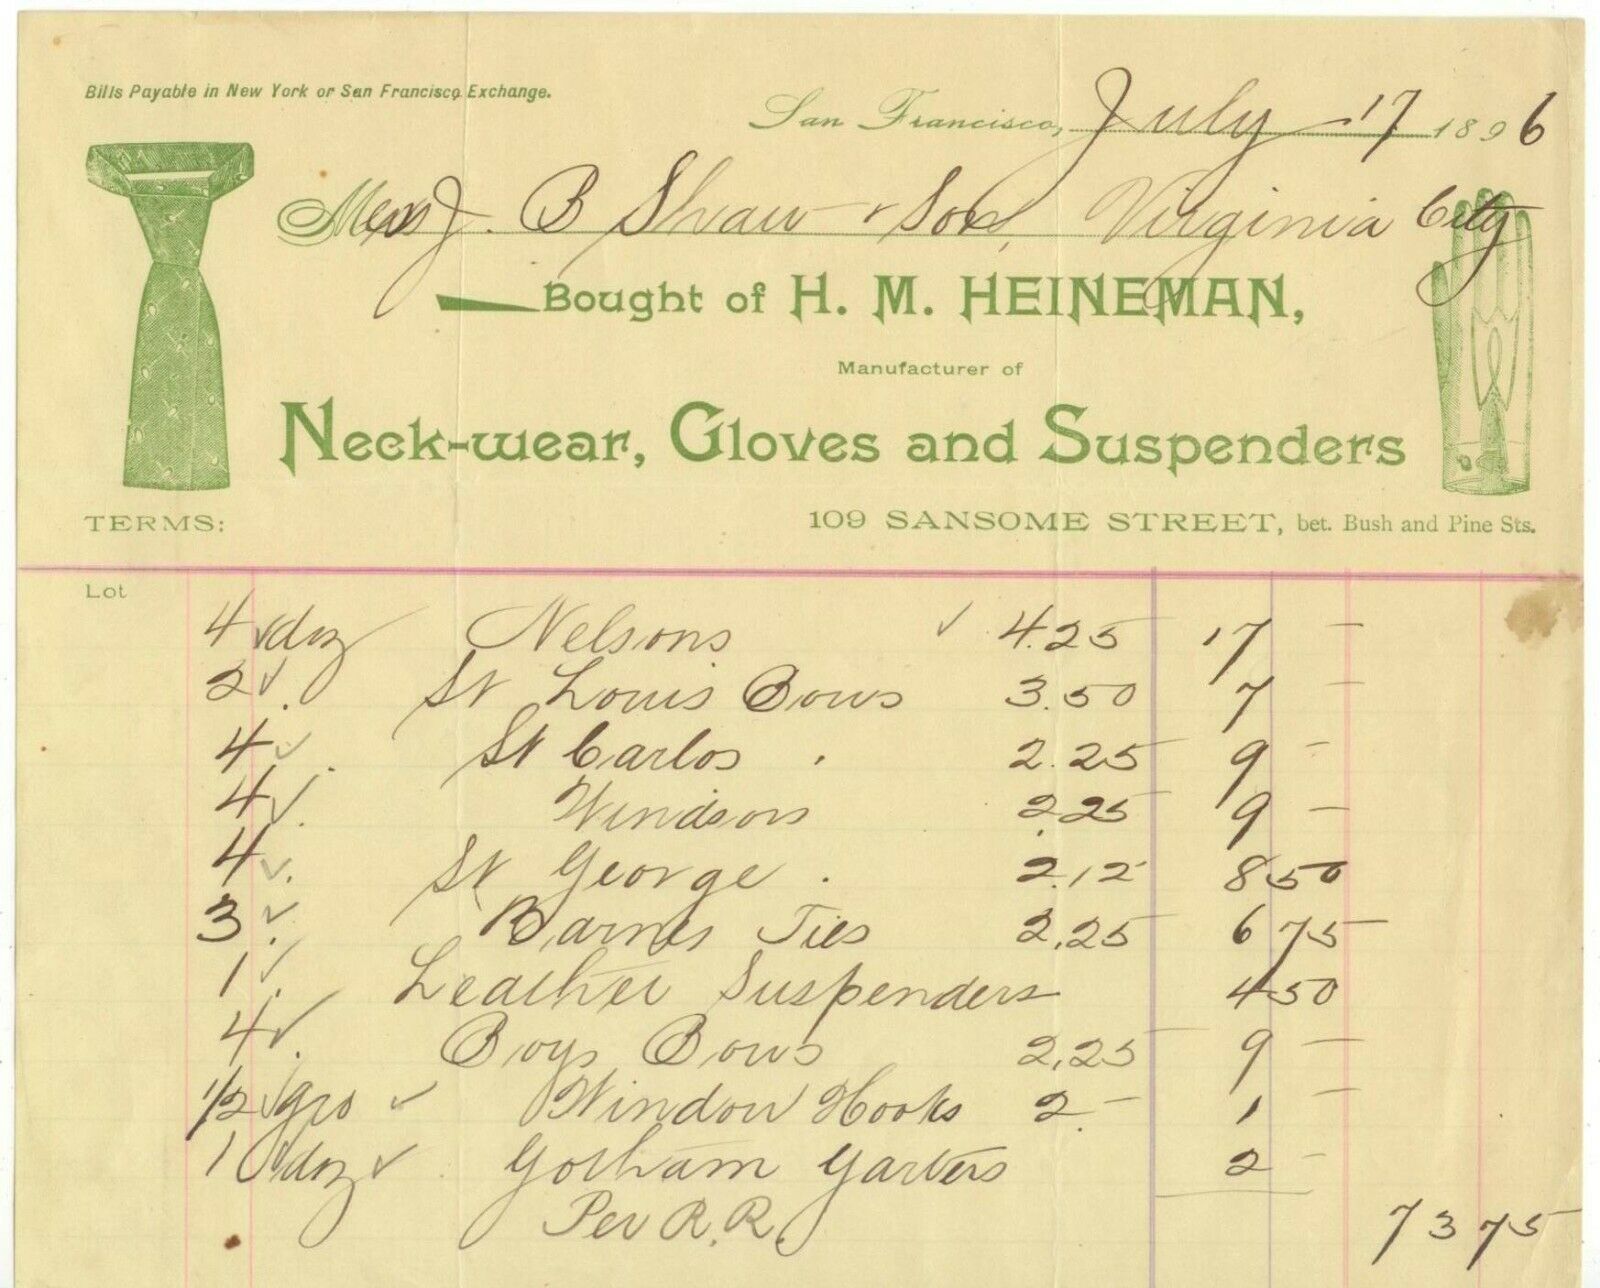 Bills Payable in New York or San Francisco Exchange.
San Francisco, July 17 1896
Mess J. B Shaw & Son, Virginia City
Bought of H. M. HEINEMAN,
Manufacturer of
Neck-wear, Gloves and Suspenders
TERMS: 109 SANSOME STREET, bet. Bush and Pine Sts.
Lot
4 doz Nelsons 4.25 17 —
2 St Louis Bows 3.50 7 —
4 St Carlos 2.25 9 —
4 Windsors 2.25 9 —
4 St George 2.12 8 50
3 Barnes Ties 2.25 6 75
1 Leather Suspenders 4 50
4 Boys Bows 2.25 9 —
1/2 gro Window Hooks 2.— 1 —
1 doz Gotham Garters 2 —
Per R.R. 73 75